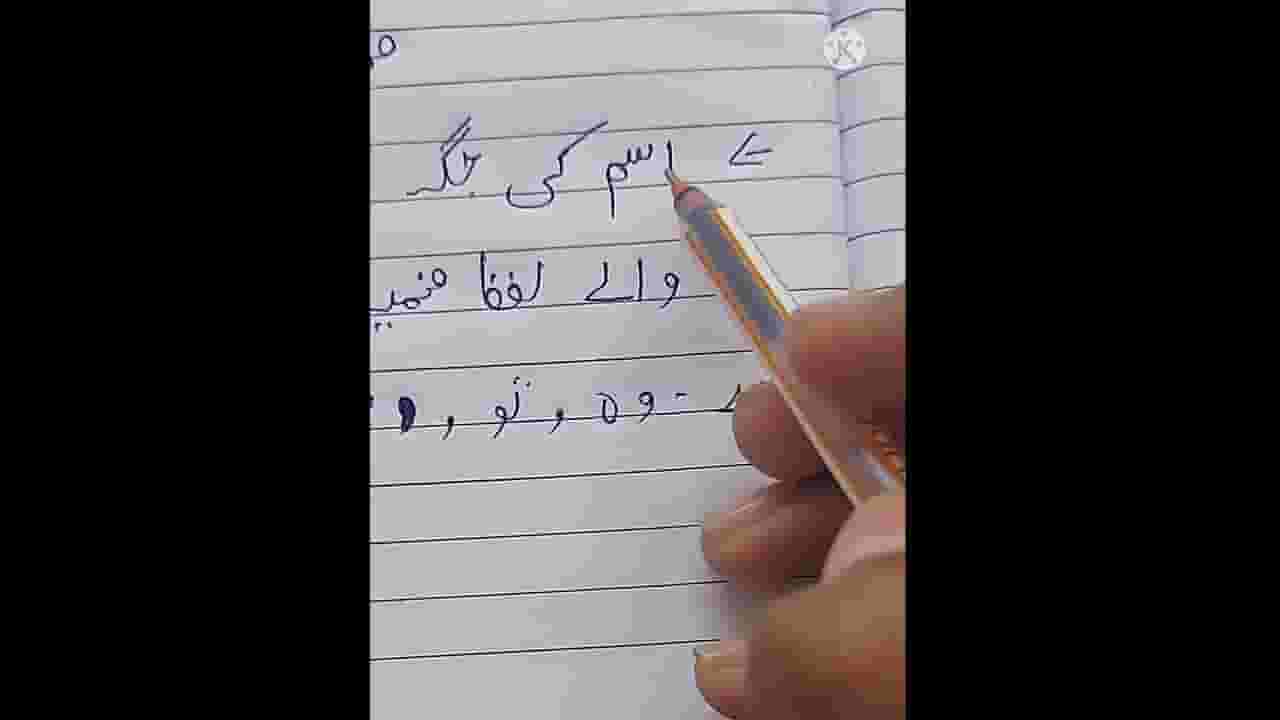 اسم کی جگہ
والے لفظ ضمیر
۔ وہ , تو ,
K